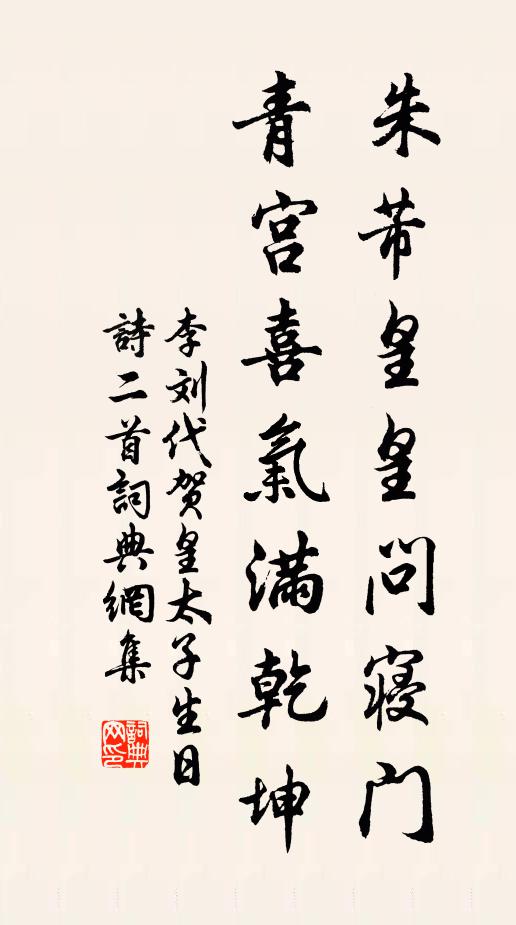 朱芾皇皇问寝门
青宫喜氣满乾坤
李刘代贺皇太子生日
詩二首詞典網集
詞典網印